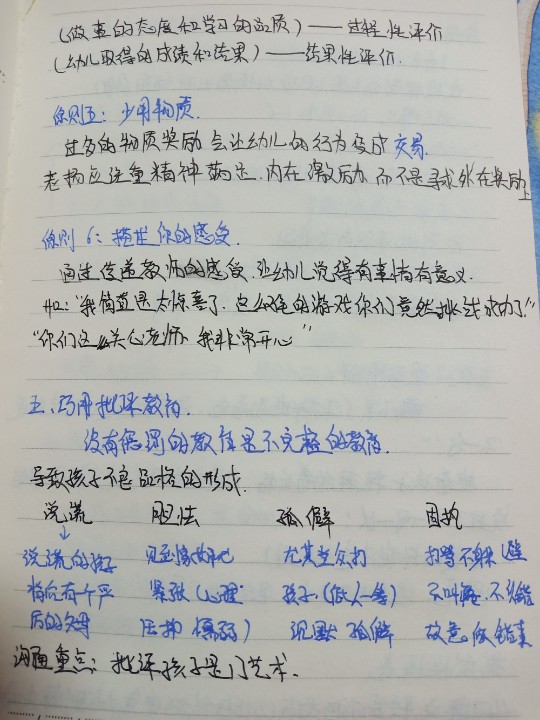 (做事的态度和学习的品质)——过程性评价
(幼儿取得的成绩和结果)——结果性评价.
原则五：少用物质.
过多的物质奖励会让幼儿的行为变成交易.
老师应注重精神满足.内在激励.而不是寻求外在奖励上
原则6：描述你的感受.
通过传递教师的感受.让幼儿觉得有事情有意义.
如："我简直是太惊喜了.这么难的游戏你们竟然挑战成功了"
"你们这么关心老师.我非常开心"
五、巧用批评教育.
没有惩罚的教育是不完整的教育.
导致孩子不良品格的形成.
说谎 胆怯 孤僻 固执
说谎的孩子 尤其当众打 打骂不躲避
背后有一个严 紧张(心理 孩子.(低人一等) 不叫 不认错
厉的父母 压抑 懦弱) 沉默 孤僻 故意做错事
沟通重点：批评孩子是门艺术.